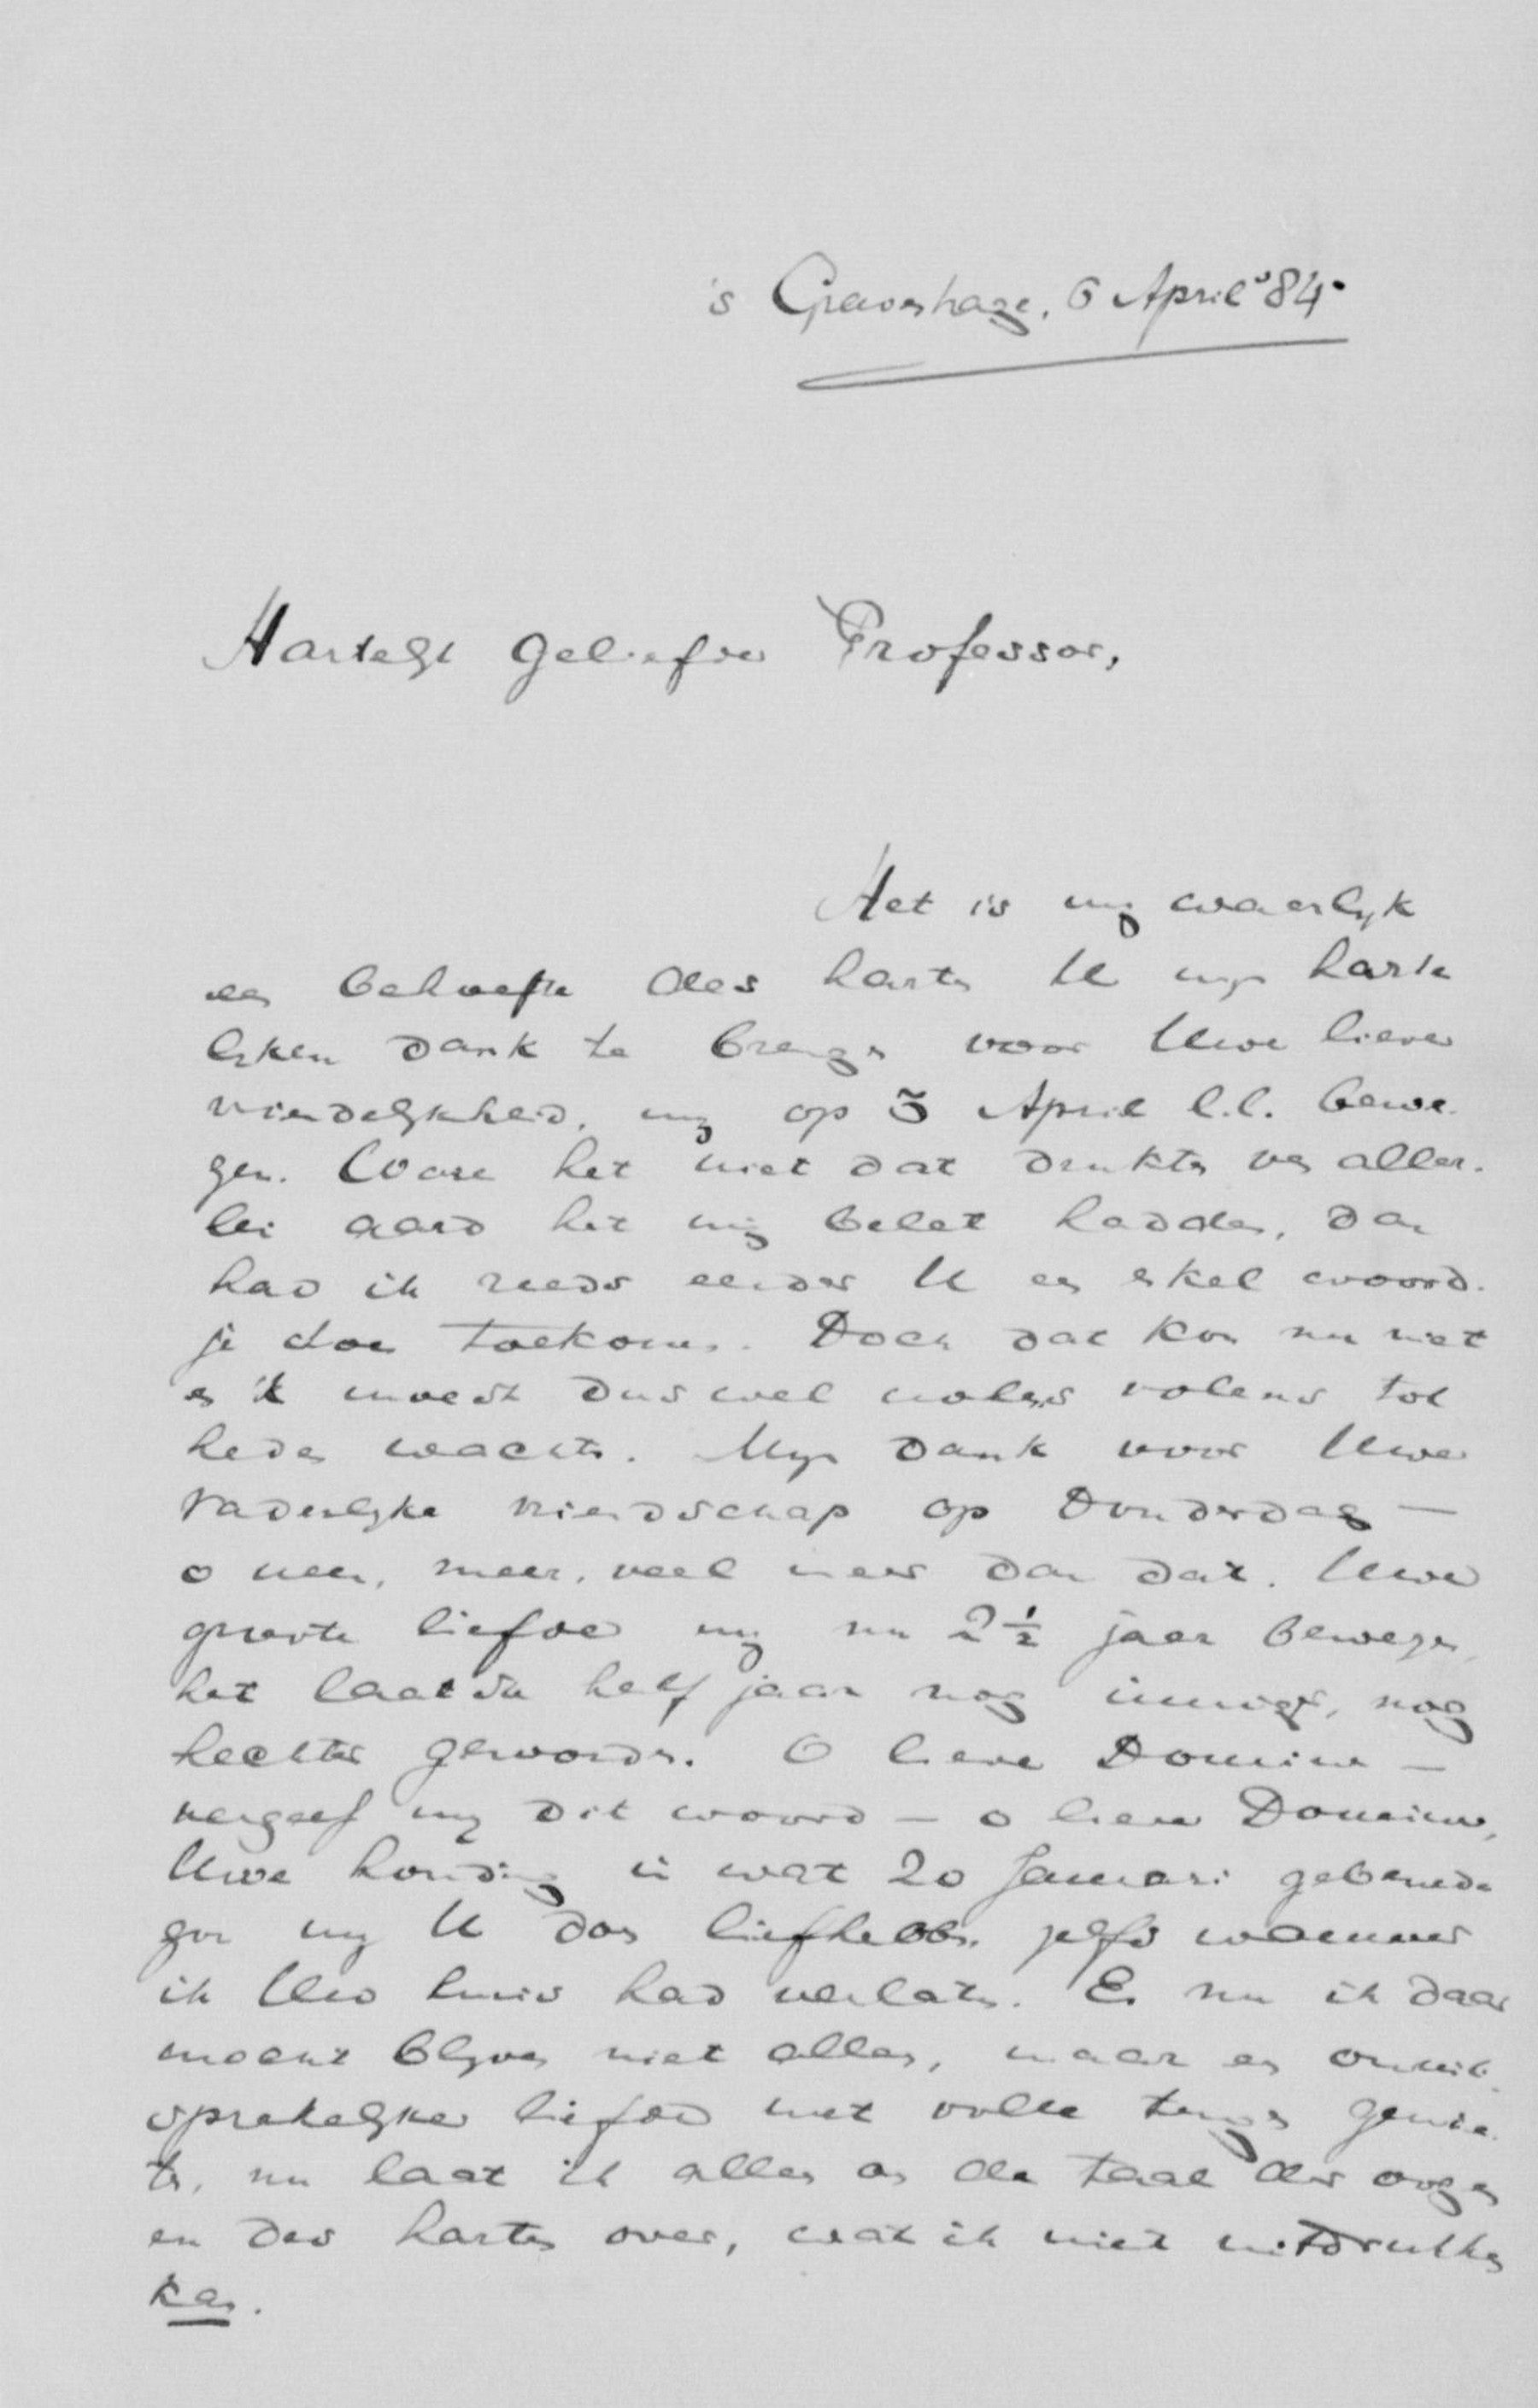 's Gravenhage, 6 April '84.
Hartelijk geliefde Professor,
Het is mij waarlijk
een behoefte des harten U mijn harte
lijken dank te brengen voor Uwe lieve
vriendelijkheid, mij op 3 April l.l. bewe-
zen. Ware het niet dat drukten van aller-
lei aard het mij belet hadden, dan
had ik reeds eerder U een enkel woord-
je doen toekomen. Doch dat kon nu niet
en ik moest dus wel nolens volens tot
heden wachten. Mijn dank voor Uwe
vaderlijke vriendschap op Donderdag —
o neen, meer, veel meer dan dat. Uwe
groote liefde mij nu 2½ jaar bewezen,
het laatste half jaar nog inniger, nog
hechter geworden. O lieve Domine —
vergeef mij dit woord — o lieve Domine,
Uwe houding in wat 20 Januari gebeurde
zou mij U doen liefhebben zelfs wanneer
ik Uw huis had verlaten. En nu ik daar
mocht blijven niet alleen, maar en onuit-
sprekelijke liefde met volle teugen genie-
ten, nu laat ik alles aan de taal der oogen
en des harten over, wat ik niet uitdrukken
kan.